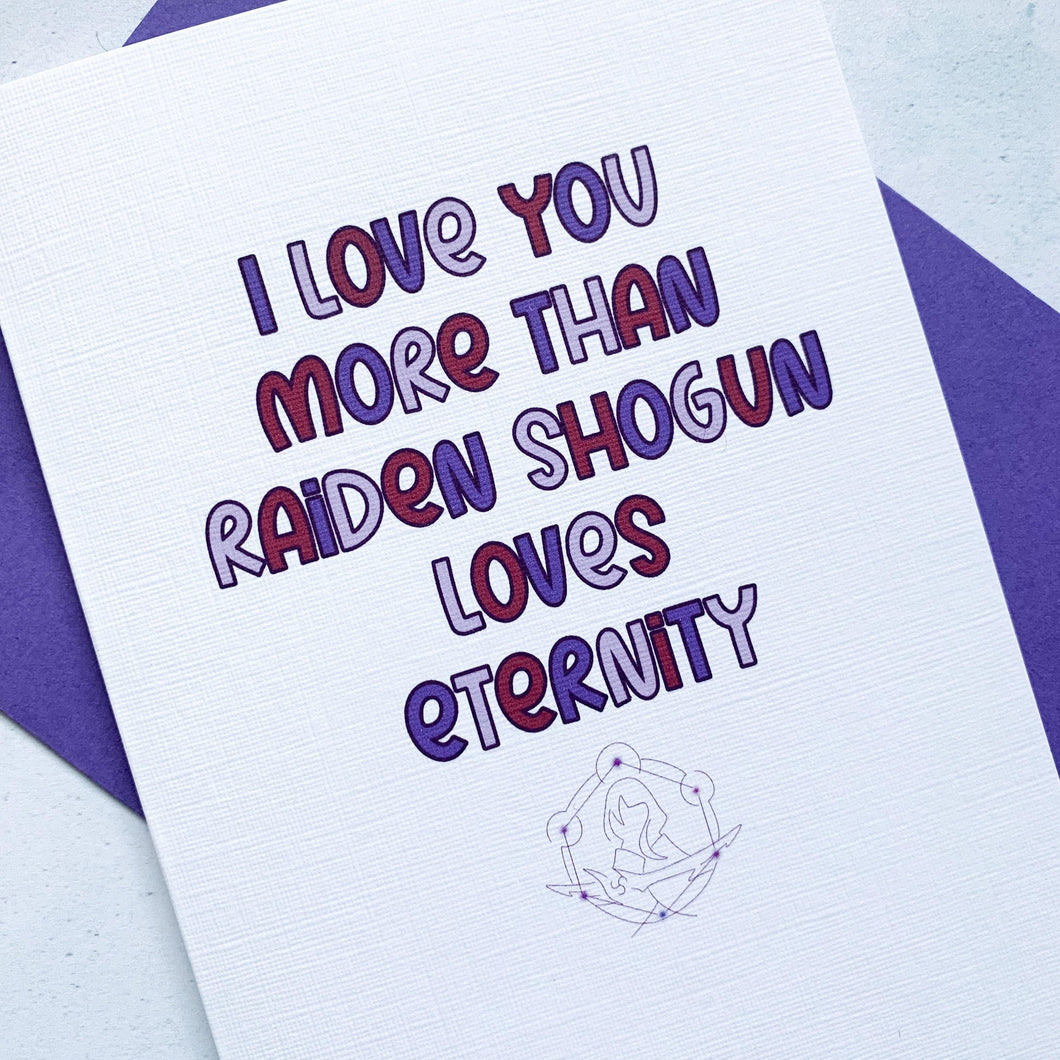 I LOVe YOU
MORe THAN
RAiDeN SHOGUN
LOVeS
eTeRNiTY